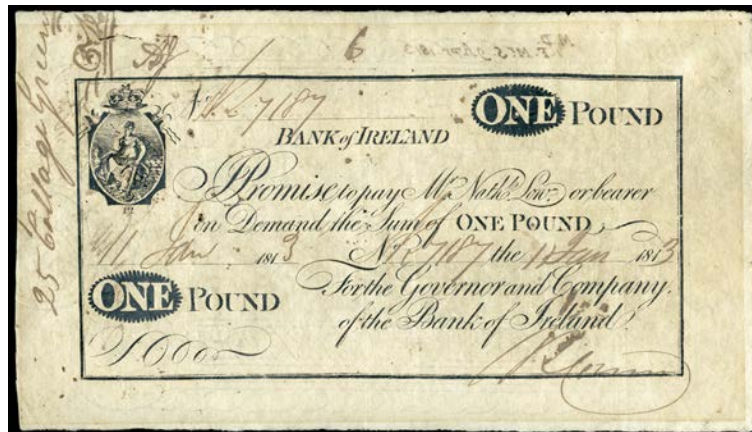 6
No. 7187
ONE POUND
BANK of IRELAND
Promise to pay Mr. Nath. Low, or bearer
on Demand the Sum of ONE POUND,
1 Jan 1813 No. 7187 the 1 Jan 1813
ONE POUND
For the Governor and Company.
of the Bank of Ireland.
25 College Green